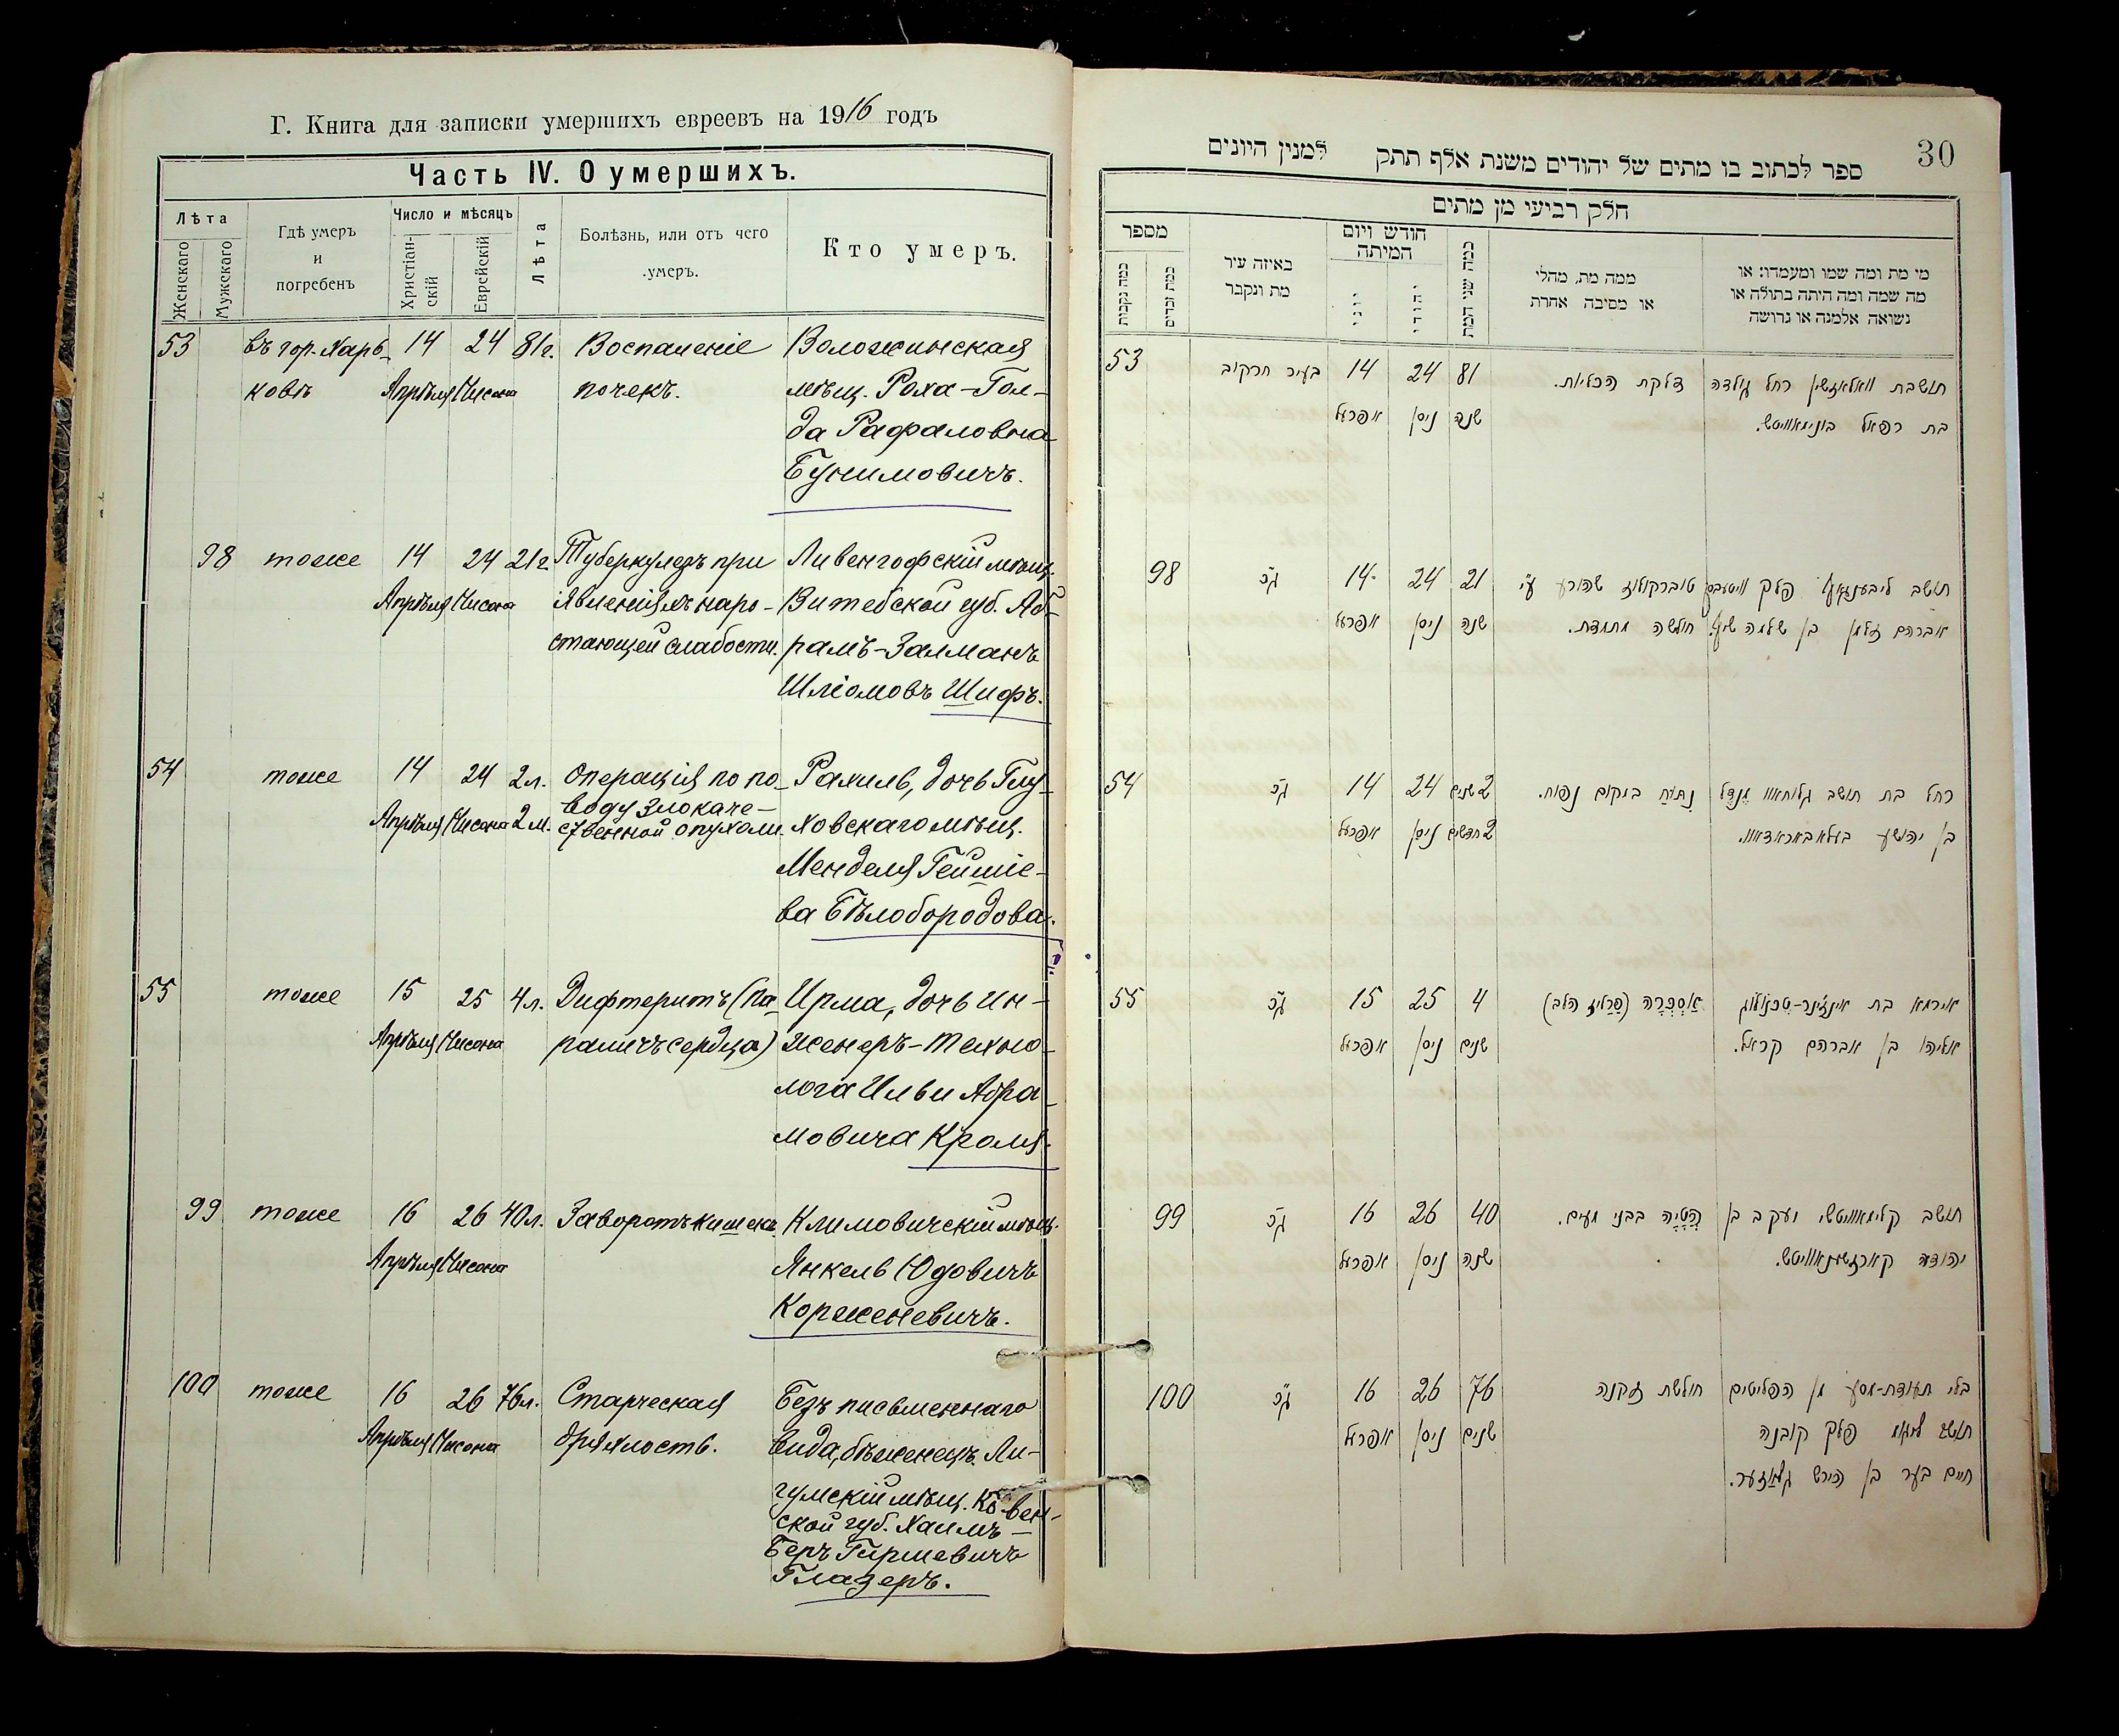 Г. Книга для записки умершихъ евреевъ на 1916 годъ
Часть IV. О умершихъ.
Лѣта
Женскаго
Мужскаго
Гдѣ умеръ
и
погребенъ
Число и мѣсяцъ
Христіан-
скій
Еврейскій
Лѣта
Болѣзнь, или отъ чего
умеръ.
Кто умеръ.
53 въ гор. Харь- 14 24 81г. Воспаленіе Воложинская
ковѣ Апрѣля Нисона почекъ. мѣщ. Роха-Гол-
да Рафаловна
Бунимовичъ.
98 тоже 14 24 21г. Туберкулезъ при Ливенгофскій мѣщ.
Апрѣля Нисона явленіяхъ наро- Витебской губ. Аб-
стающей слабости. рамъ-Залманъ
Шліомовъ Шифъ.
54 тоже 14 24 2л. Операція по по- Рахиль, дочь Глу-
воду злокаче-
Апрѣля Нисона 2м. ственной опухоли. ховскаго мѣщ.
Менделя Гейшіе-
ва Бѣлобородова.
55 тоже 15 25 4л. Дифтеритъ (па- Ирма, дочь ин-
Апрѣля Нисона раличъ сердца) женеръ-техно-
лога Ильи Абра-
мовича Кроля.
99 тоже 16 26 40л. Заворотъ кишекъ Климовичскій мѣщ.
Апрѣля Нисона Янкель Юдовичъ
Корженевичъ.
100 тоже 16 26 76л. Старческая Безъ письменнаго
Апрѣля Нисона дряхлость. вида, бѣженецъ. Ли-
гумскій мѣщ. Ковен-
ской губ. Хаимъ-
Беръ Гиршевичъ
Глазеръ.
30
ספר לכתוב בו מתים של יהודים משנת אלף תתק למנין היונים
חלק רביעי מן מתים
מספר
כמה נקבות
כמה זכרים
באיזה עיר
מת ונקבר
חודש ויום
המיתה
יוני
יהודי
כמה שני המת
ממה מת, מחלי
או מסיבה אחרת
מי מת ומה שמו ומעמדו: או
מה שמה ומה היתה בתולה או
נשואה אלמנה או גרושה
53 בעיר חרקוב 14 24 81 דלקת הכליות. תושבת וואלאזשין רחל גולדה
אפרעל ניסן שנה בת רפאל בונימאוויטש.
98 14 24 21 טוברקולוז תושב פלך וויטעבסק
אפרעל ניסן שנה חולשה אברהם זלמן בן שלמה שיף.
54 14 24 2 שנים נתוח במקום נפוח. רחל בת תושב גלוחאוו מנדל
אפרעל ניסן 2 חדשים בן יהושע בעלאבאראדאוו.
55 15 25 4 אסכרה (פרליז הלב) אירמא בת אינזינר-טכנולוג
אפרעל ניסן שנים אליהו בן אברהם קראל.
99 16 26 40 בבני מעים. תושב קלימאוויטשי יעקב בן
אפרעל ניסן שנה יהודה קארזשענאוויטש.
100 16 26 76 חולשת זקנה בלי תעודת-מסע מן הפליטים
אפרעל ניסן שנים תושב פלך קובנה
חיים בער בן הירש גלאזער.